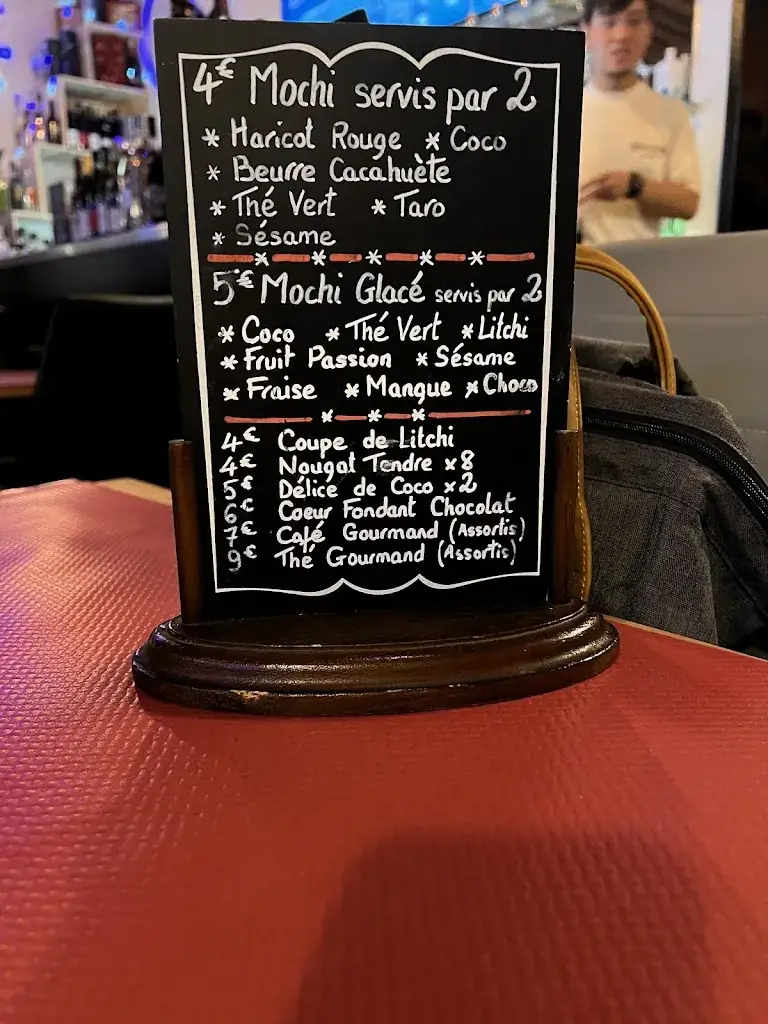 4€ Mochi servis par 2
* Haricot Rouge * Coco
* Beurre Cacahuète
* Thé Vert * Taro
* Sésame
5€ Mochi Glacé servis par 2
* Coco * Thé Vert * Litchi
* Fruit Passion * Sésame
* Fraise * Mangue * Choco
4€ Coupe de Litchi
4€ Nougat Tendre x8
5€ Délice de Coco x2
6€ Coeur Fondant Chocolat
7€ Café Gourmand (Assortis)
9€ Thé Gourmand (Assortis)